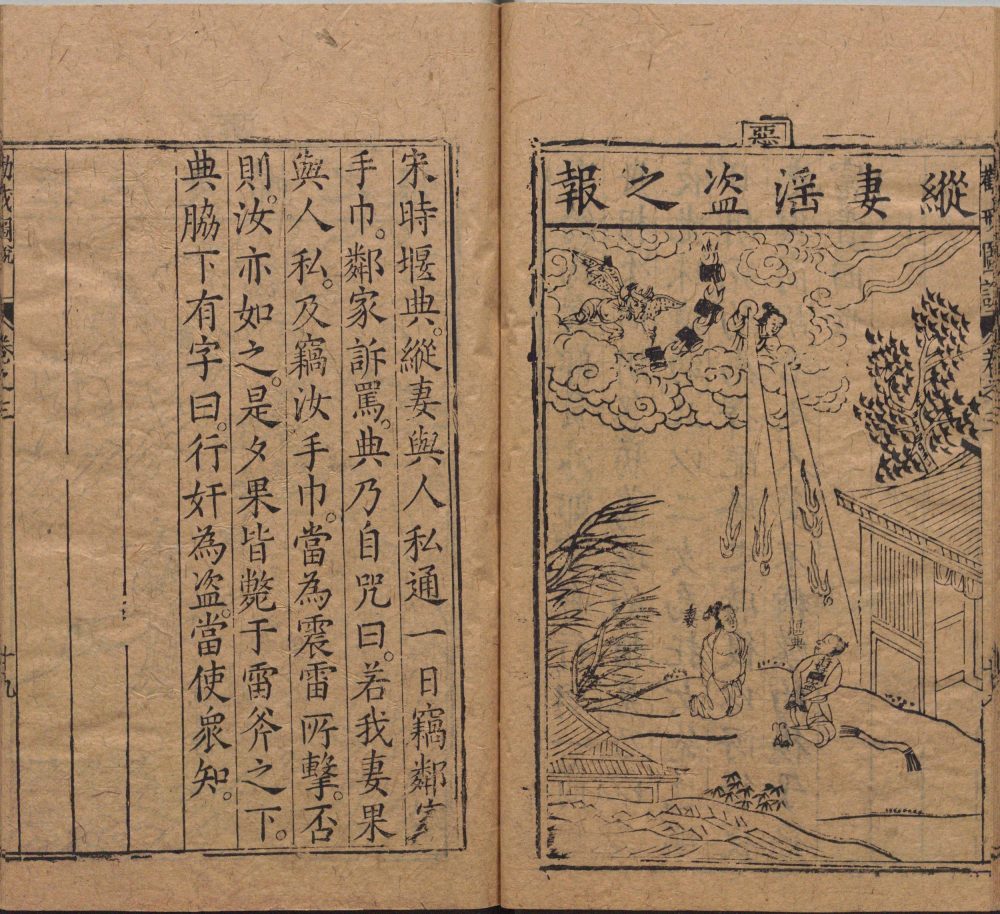 惡
縱妻淫盜之報
妻
堰典
宋時堰典縱妻與人私通一日竊鄰家
手巾鄰家訴罵典乃自咒曰若我妻果
與人私及竊汝手巾當為震雷所擊否
則汝亦如之是夕果皆斃于雷斧之下
典脇下有字曰行奸為盜當使眾知
卷之三
十九